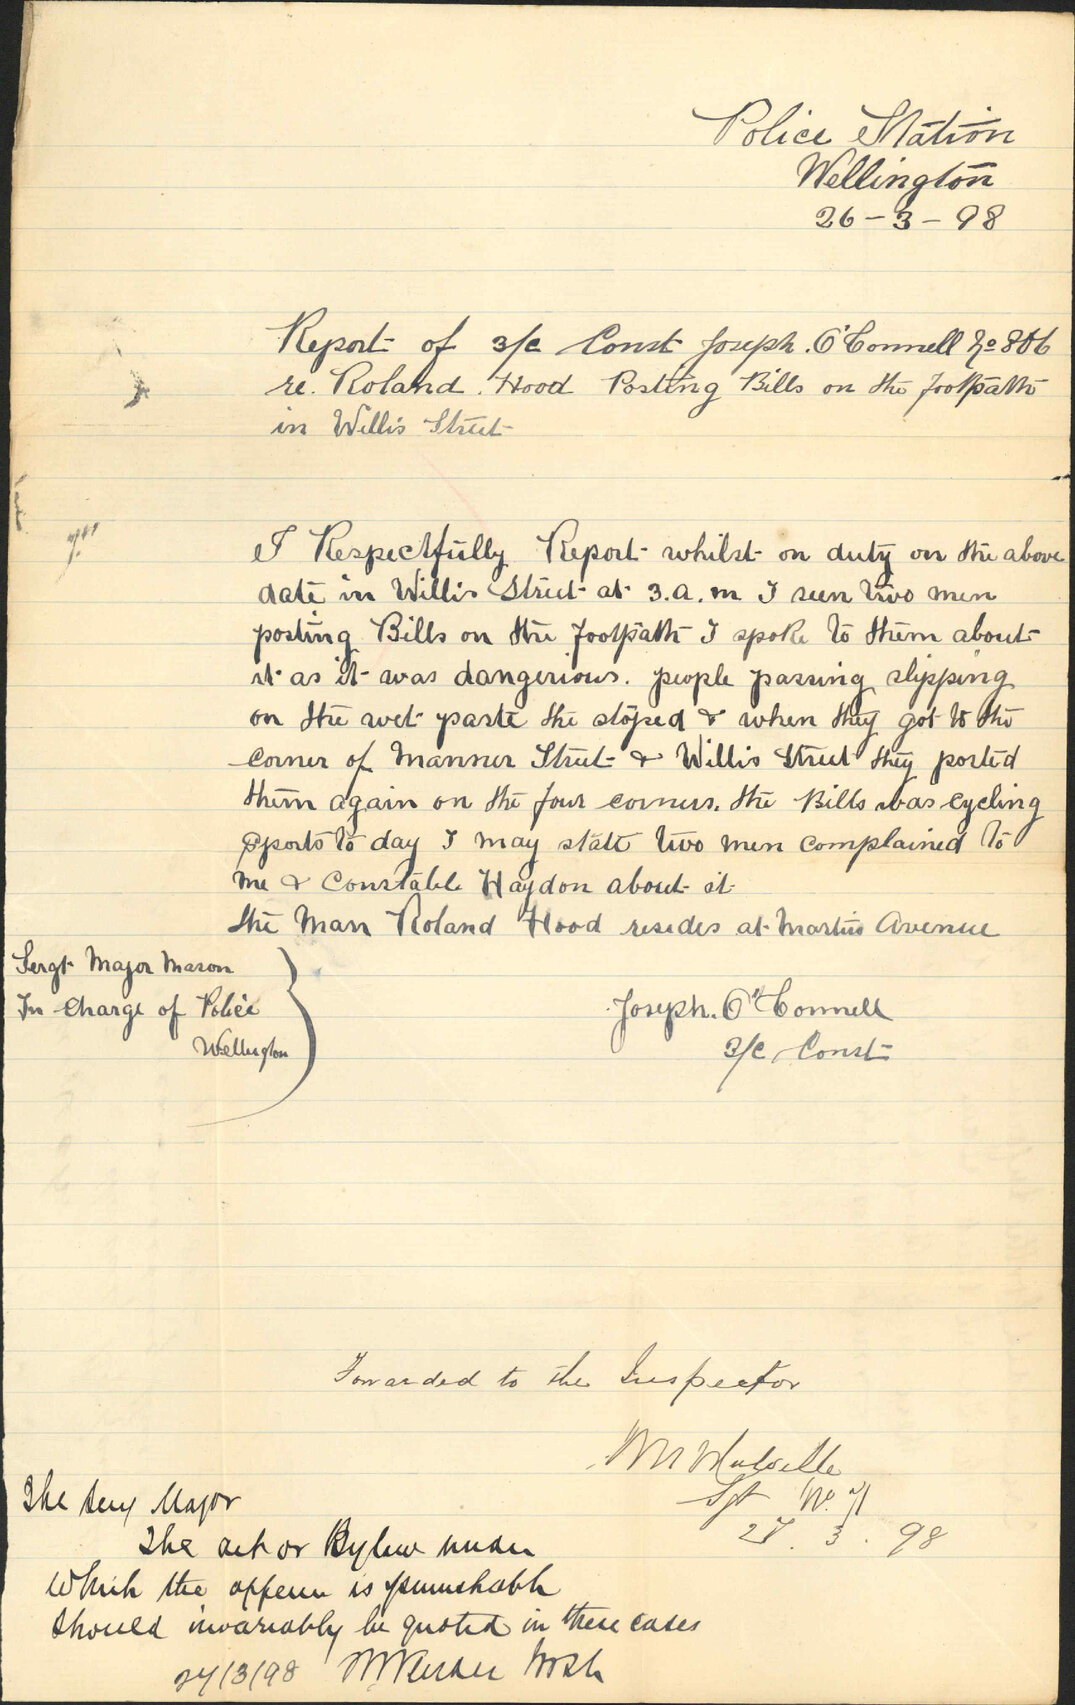 Police Station
Wellington
26 - 3 - 98
Report of 3/c Const Joseph. O'Connell No 806
re. Roland. Hood Posting Bills on the footpath
in Willis Street
I Respectfully Report whilst on duty on the above
date in Willis Street at 3.a.m I seen two men
posting Bills on the footpath I spoke to them about
it as it was dangerious. people passing slipping
on the wet paste the stoped & when they got to the
corner of Manner Street & Willis Street they posted
them again on the four corners. the Bills was cycling
sports to day I may state two men complained to
me & Constable Haydon about it
the Man Roland Hood resides at Martins Avenue
Sergt Major Mason
In Charge of Police
Wellington
Joseph. O'Connell
3/c Const
Forwarded to the Inspector
Sgt No
27. 3. 98
The Major
The act or Bylaw under
which the offence is punishable
should invariably be quoted in these cases
27/3/98